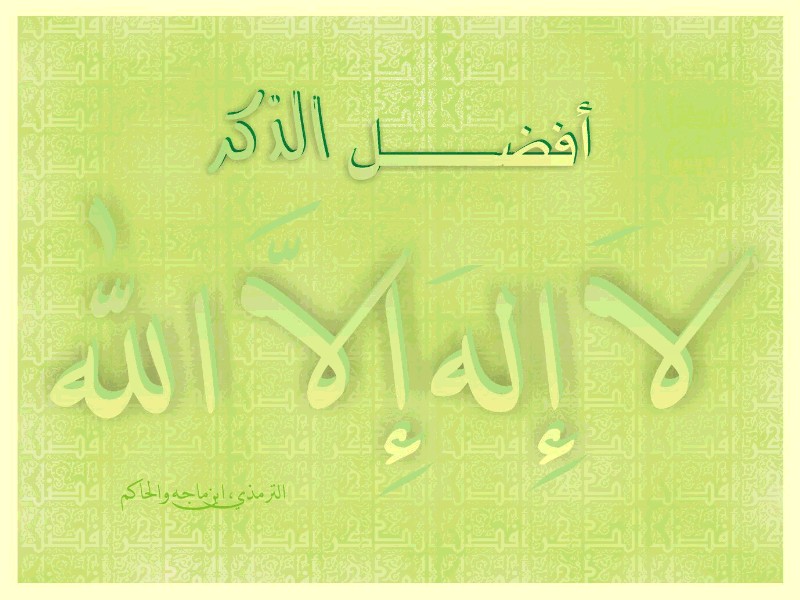 أفضل الذكر
لَا إِلَهَ إِلَّا اللّٰه
الترمذي، ابن ماجه والحاكم